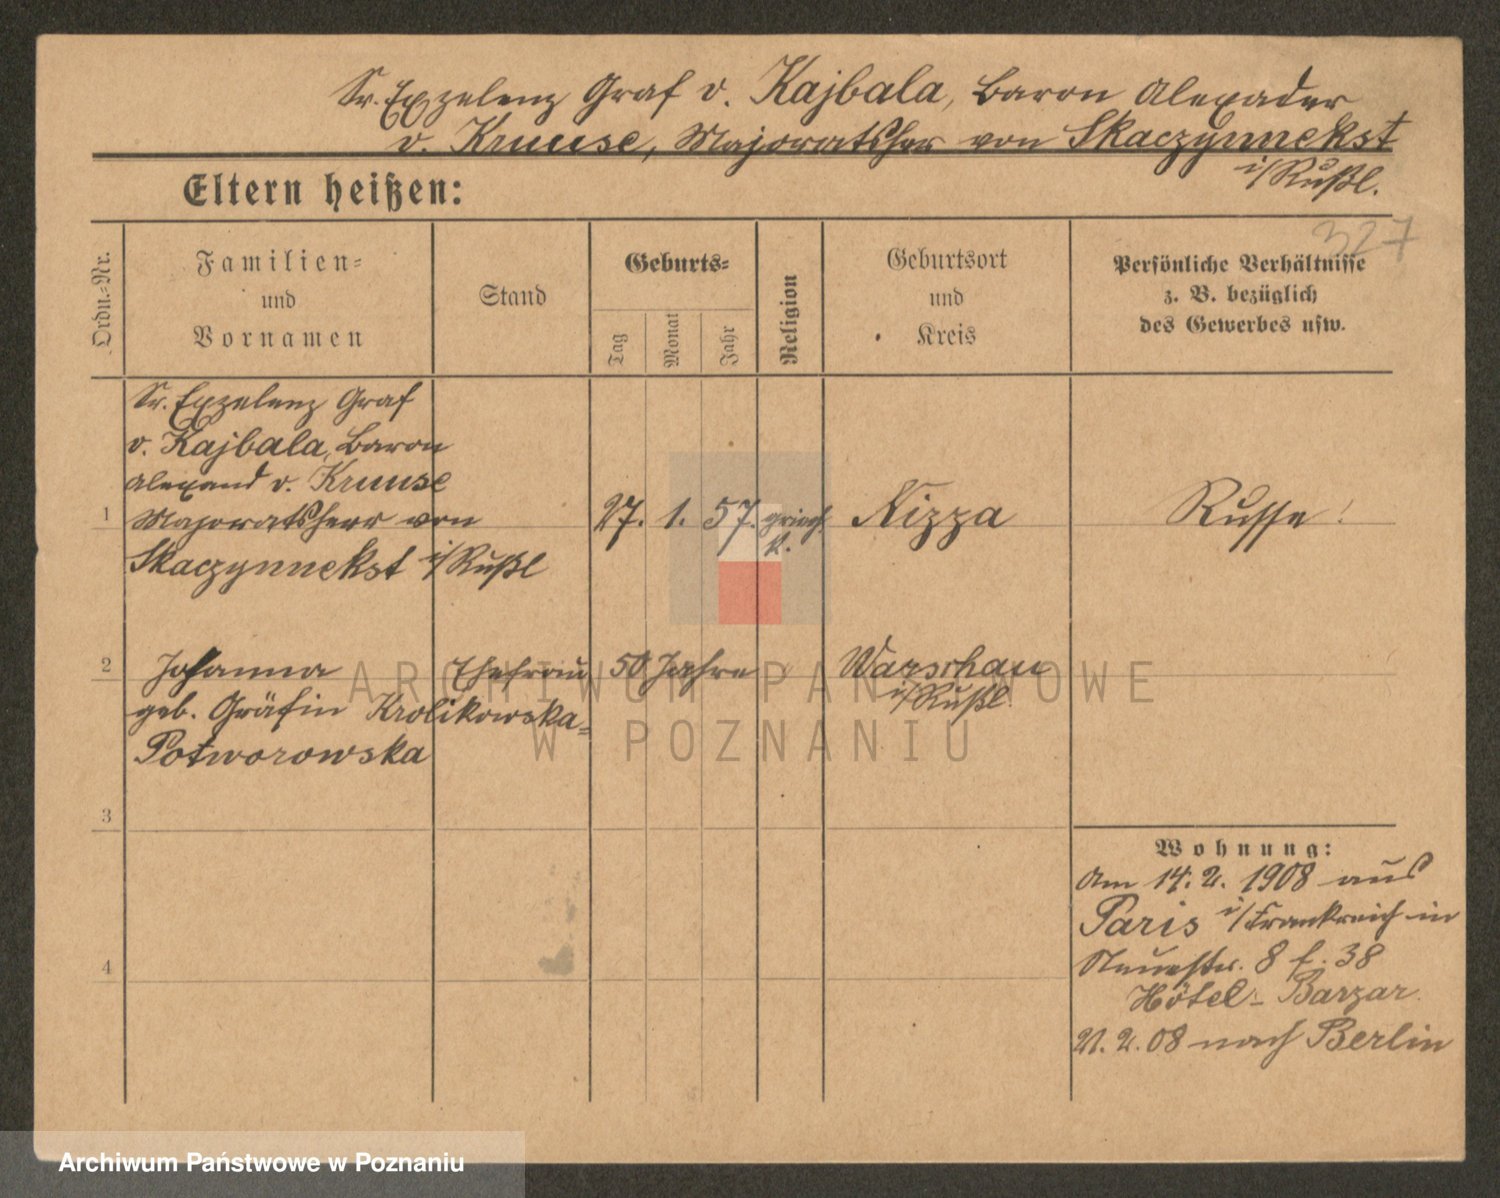 Sr. Exzelenz Graf v. Kajbala, Baron Alexader
v. Kruuse, Majoratsher von Skaczynnekst
i/Rußl.
Eltern heißen:
327
Ordn.-Nr.
Familien-
und
Vornamen
Stand
Geburts-
Tag
Monat
Jahr
Religion
Geburtsort
und
Kreis
Persönliche Verhältnisse
z. B. bezüglich
des Gewerbes usw.
Sr. Exzelenz Graf
v. Kajbala, Baron
Alexand v. Kruuse
1 Majoratsherr von 27. 1. 57. griech. Nizza Russe!
k.
Skaczynnekst i/Rußl
2 Johanna Ehefrau 50 Jahre Warschau
i/Rußl.
geb. Gräfin Krolikowska-
Potworowska
3
4
Wohnung:
Am 14. 2. 1908 aus
Paris i/Frankreich in
Neuestr. 8 f. 38
Hôtel-Barzar.
21. 2. 08 nach Berlin
ARCHIWUM PAŃSTWOWE
W POZNANIU
Archiwum Państwowe w Poznaniu